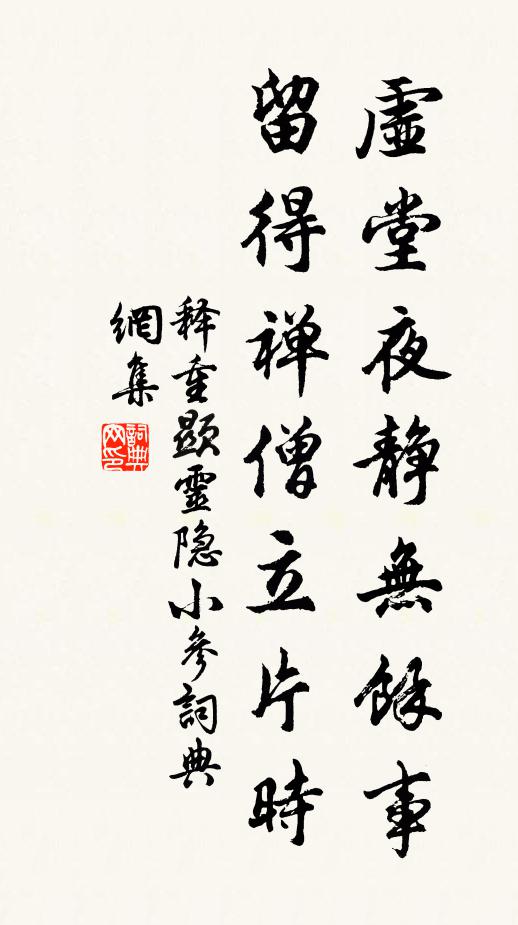 虚堂夜靜無餘事
留得禅僧立片時
释重顯靈隐小參詞典
網集
詞典
网印